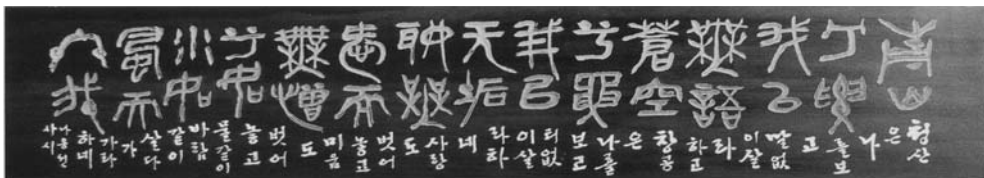 靑山
兮要
我以
無語
蒼空
兮要
我以
无垢
聊無
愛而
無憎
兮如
水如
風而
終我
청산
은
나
를보
고
말없
이살
라
하고
창공
은
나를
보고
티없
이살
라하
네
사랑
도
벗어
놓고
미움
도
벗어
놓고
물같이
바람
같이
살다
가
가라
하네
나옹선
사시